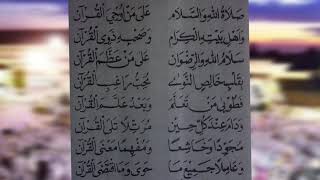 صَلَاةُ اللهِ وَالسَّلَامُ عَلَى مَنْ أُوْحِيَ الْقُرْآنَ
وَاَهْلِ بَيْتِهِ الْكِرَامِ وَصَحْبِهِ ذَوِى الْقُرْآنِ
سَلَامُ اللهِ وَالرِّضْوَانُ عَلَى مَنْ عَظَّمَ الْقُرْآنَ
بِقَلْبِهِ خَالِصِ النَّوٰى يُحِبُّ رَاغِبَ الْقُرْآنِ
فَطُوْبٰى مَنْ تَعَلَّمَ وَبَعْدُ عَلَّمَ الْقُرْآنَ
وَدَامَ عِنْدَ كُلِّ حِيْنٍ مُرَتِّلًا تَلَى الْقُرْآنَ
مُجَوِّدًا وَخَاشِعًا وَمُفْهِمًا مَعْنَى الْقُرْآنِ
وَعَامِلًا جَمِيْعَ مَا حَوٰى وَمَا اقْتَضَى الْقُرْآنُ